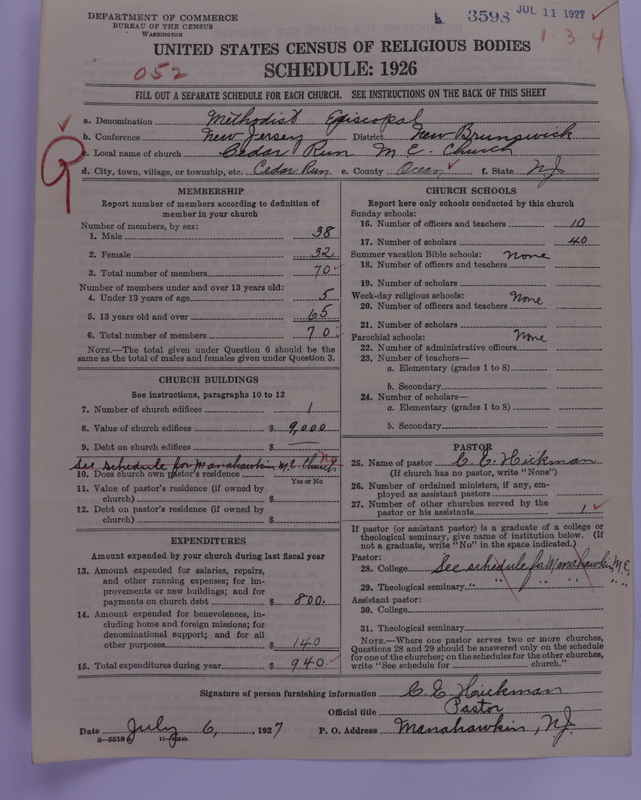 DEPARTMENT OF COMMERCE
BUREAU OF THE CENSUS
WASHINGTON
3598 JUL 11 1927
1 3 4
UNITED STATES CENSUS OF RELIGIOUS BODIES
052
SCHEDULE: 1926
FILL OUT A SEPARATE SCHEDULE FOR EACH CHURCH. SEE INSTRUCTIONS ON THE BACK OF THIS SHEET
a. Denomination Methodist Episcopal
b. Conference New Jersey District New Brunswick
c. Local name of church Cedar Run M E. Church
d. City, town, village, or township, etc. Cedar Run e. County Ocean f. State NJ
MEMBERSHIP
Report number of members according to definition of
member in your church
Number of members, by sex:
1. Male 38
2. Female 32
3. Total number of members 70
Number of members under and over 13 years old:
4. Under 13 years of age 5
5. 13 years old and over 65
6. Total number of members 70
NOTE.—The total given under Question 6 should be the
same as the total of males and females given under Question 3.
CHURCH BUILDINGS
See instructions, paragraphs 10 to 12
7. Number of church edifices 1
8. Value of church edifices $ 9,000
9. Debt on church edifices $ —
See schedule for Manahawkin M.E. Church
10. Does church own pastor's residence
Yes or No
11. Value of pastor's residence (if owned by
church) $
12. Debt on pastor's residence (if owned by
church) $
EXPENDITURES
Amount expended by your church during last fiscal year
13. Amount expended for salaries, repairs,
and other running expenses; for im-
provements or new buildings; and for
payments on church debt $ 800.
14. Amount expended for benevolences, in-
cluding home and foreign missions; for
denominational support; and for all
other purposes $ 140
15. Total expenditures during year $ 940
CHURCH SCHOOLS
Report here only schools conducted by this church
Sunday schools:
16. Number of officers and teachers 10
17. Number of scholars 40
Summer vacation Bible schools: None
18. Number of officers and teachers
19. Number of scholars
Week-day religious schools: None
20. Number of officers and teachers
21. Number of scholars
Parochial schools: None
22. Number of administrative officers
23. Number of teachers—
a. Elementary (grades 1 to 8)
b. Secondary
24. Number of scholars—
a. Elementary (grades 1 to 8)
b. Secondary
PASTOR
25. Name of pastor C. E. Hickman
(If church has no pastor, write "None")
26. Number of ordained ministers, if any, em-
ployed as assistant pastors
27. Number of other churches served by the
pastor or his assistants 1
If pastor (or assistant pastor) is a graduate of a college or
theological seminary, give name of institution below. (If
not a graduate, write "No" in the space indicated.)
Pastor:
28. College See schedule for Manahawkin, M.E.
29. Theological seminary " " " " "
Assistant pastor:
30. College
31. Theological seminary
NOTE.—Where one pastor serves two or more churches,
Questions 28 and 29 should be answered only on the schedule
for one of the churches; on the schedules for the other churches,
write "See schedule for ---------- church."
Signature of person furnishing information C. E. Hickman
Official title Pastor
Date July 6, 1927 P. O. Address Manahawkin, NJ